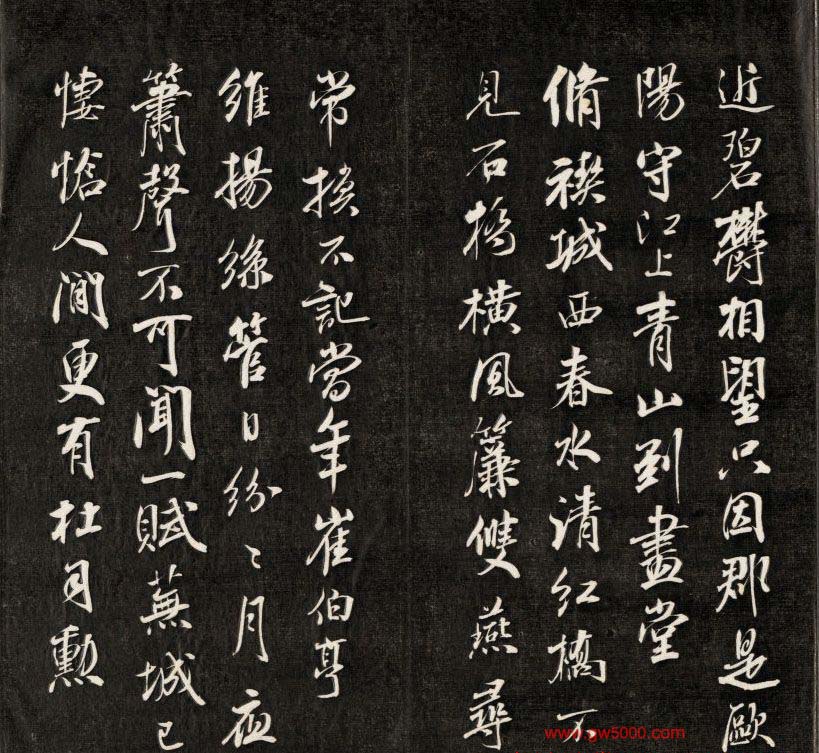 近碧鬱相望只因郡是歐
陽守江上青山到畫堂
脩禊城西春水清紅橋不
見石橋橫風簾雙燕尋
常換不記當年崔伯亭
維揚絲管日紛〻月夜
簫聲不可聞一賦蕪城已
悽愴人間更有杜司勳
www.gw5000.com